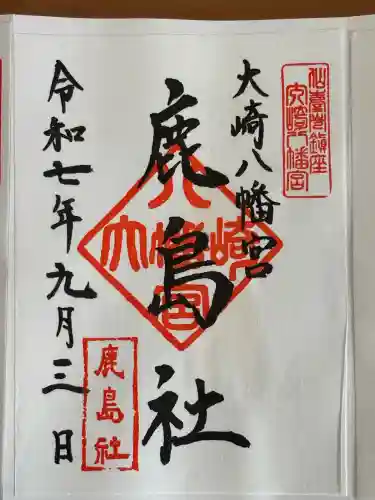 仙臺總鎮座
大崎八幡宮
大崎八幡宮
鹿島社
大崎八幡宮
令和七年九月三日
鹿島社